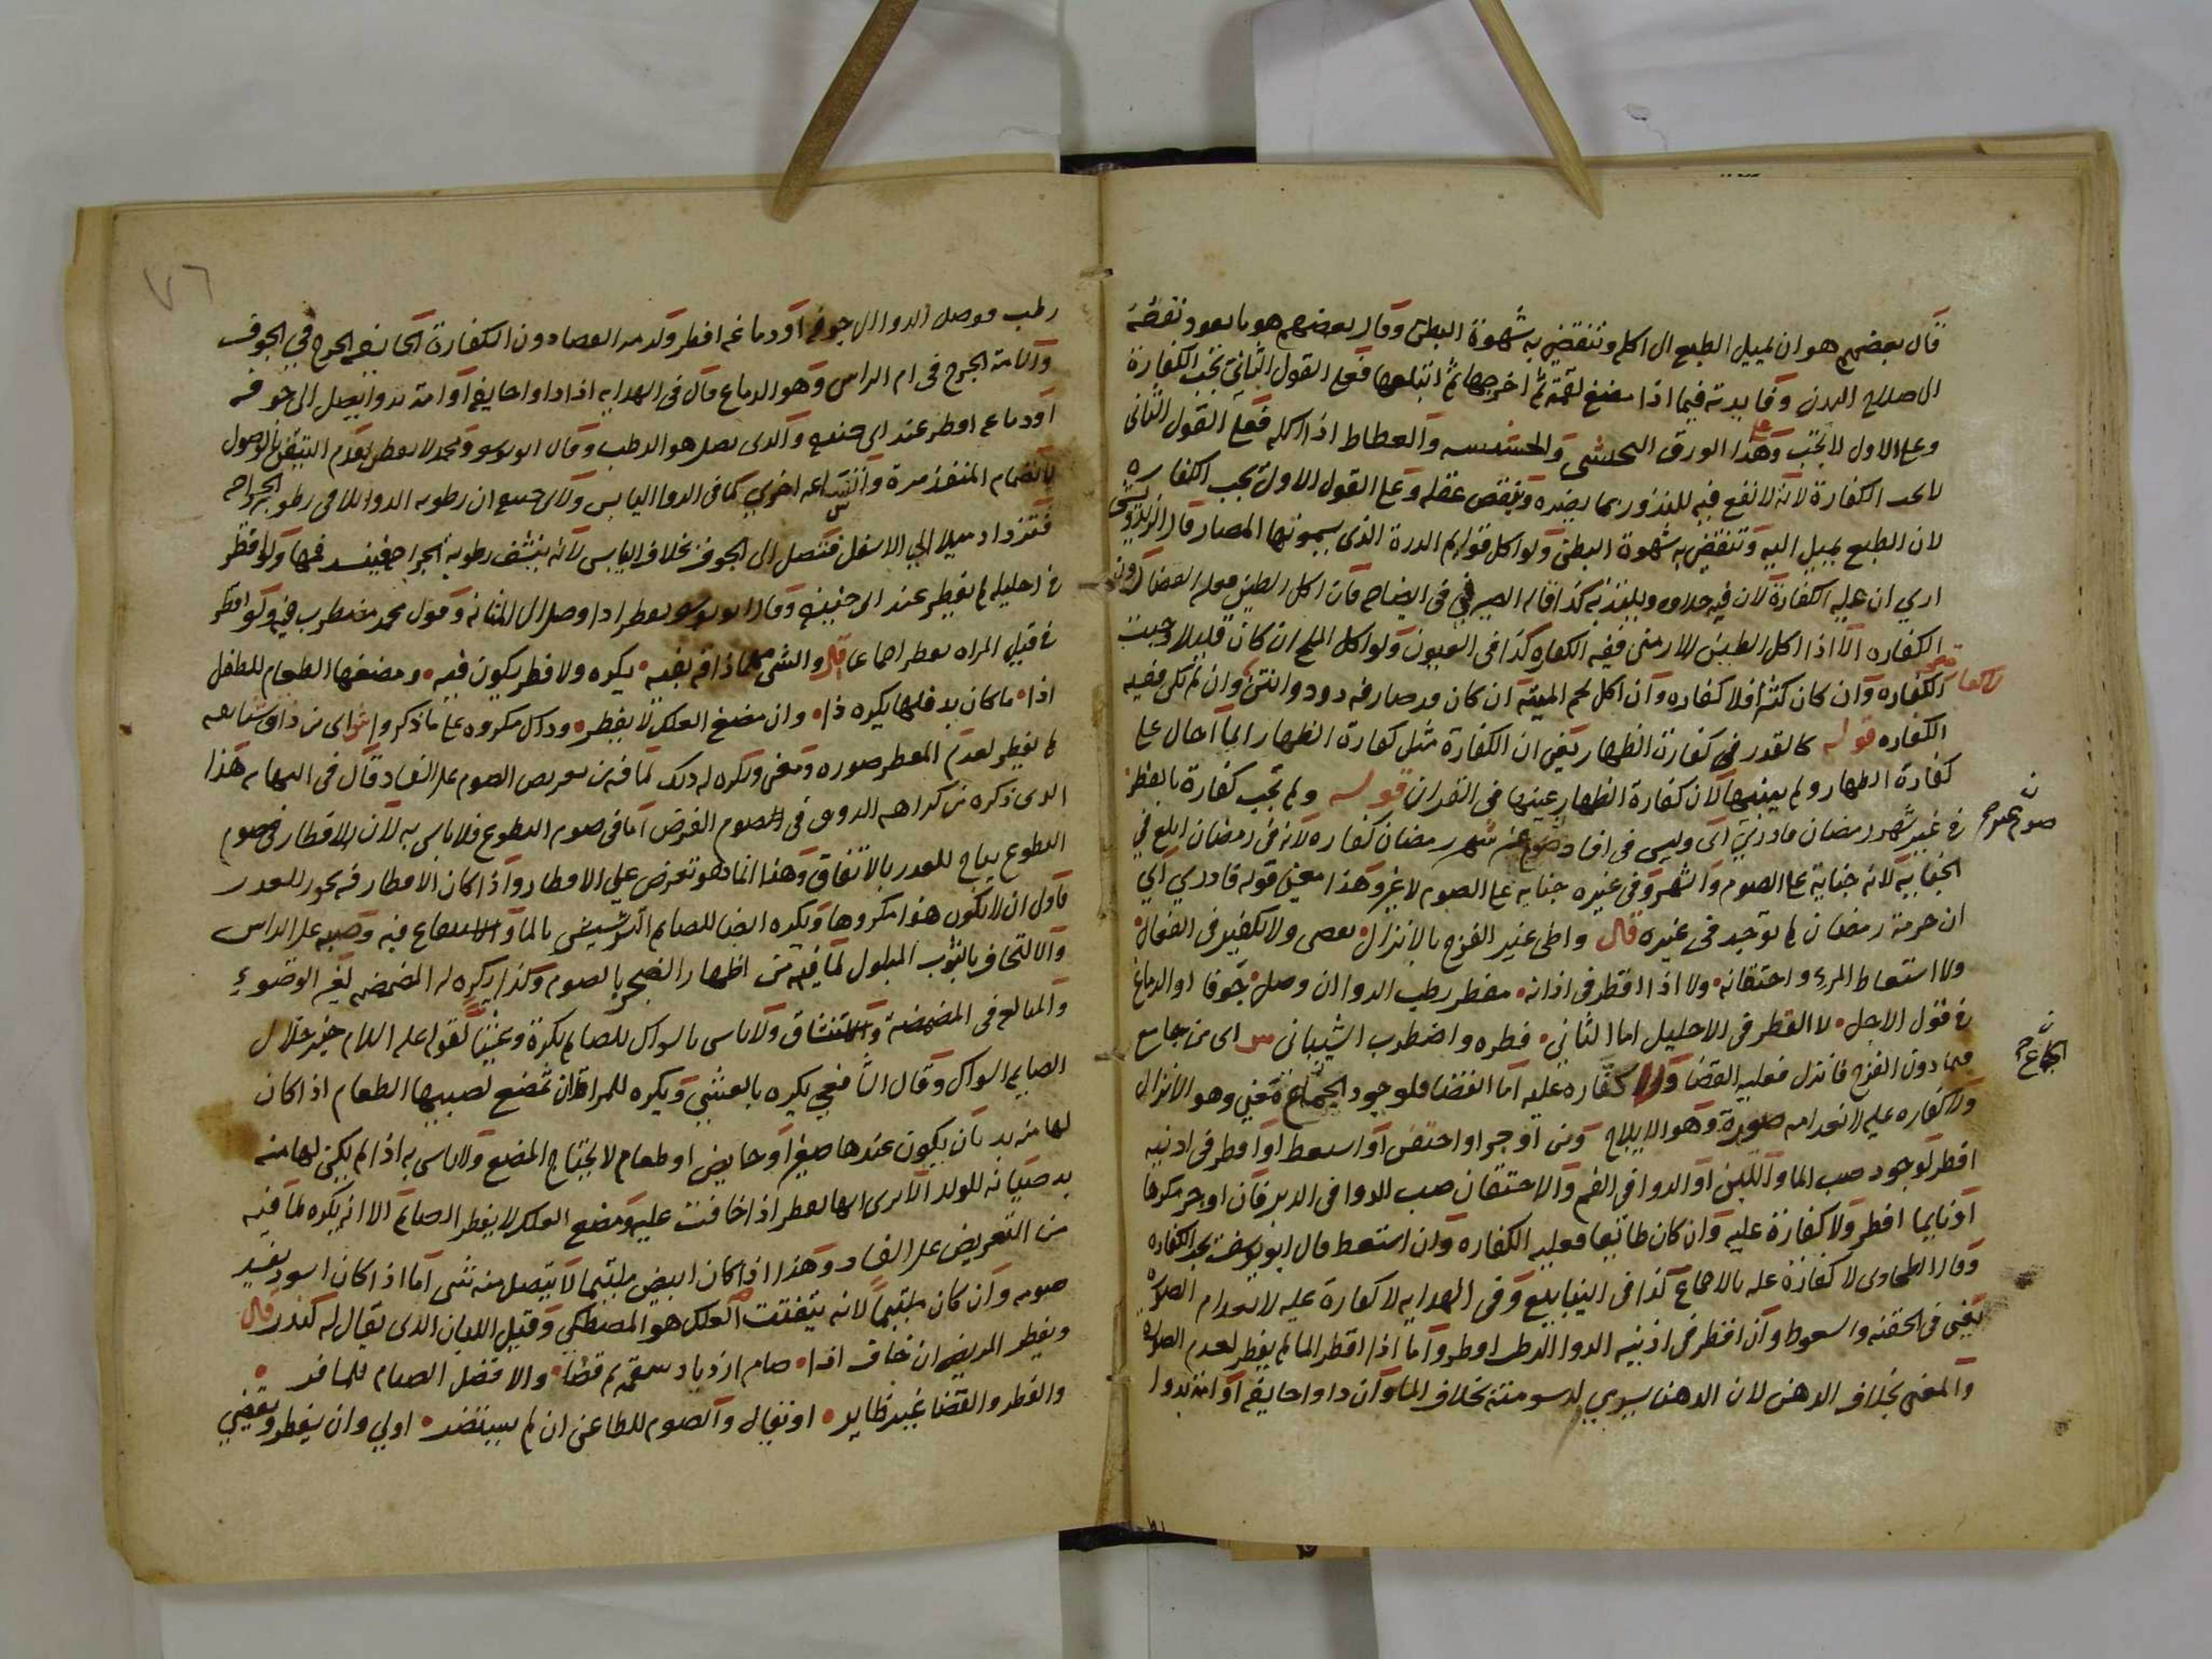 قال بعضهم هو ان يميل الطبع الى اكله وتنقضي به شهوة البطن وقال بعضهم هو ما يعود نفعه
الى صلاح البدن وفايدته فيما اذا مضغ لقمة ثم اخرجها ثم ابتلعها فعلى القول الثاني تجب الكفارة
وعلى الاول لا تجب وعلى هذا الورق الحبشي والحشيشة والعطاط اذا اكله فعلى القول الثاني
لا تجب الكفارة لانه لا نفع فيه للبدن وربما يضره وينقص عقله وعلى القول الاول تجب الكفارة
لان الطبع يميل اليه وتنقضي به شهوة البطن ولو اكل قوايم الدرة الذي يسمونها المصار قال الزندويستي
ارى ان عليه الكفارة لان فيه حلاوة ويلتذ به كذا قاله الصيرفي في الايضاح فان اكل الطين فعليه القضا دون
الكفاره الا اذا اكل الطين الارمني ففيه الكفاره كذا في العيون ولو اكل الملح ان كان قليلا وجبت
الكفاره وان كان كثيرا فلا كفاره وان اكل لحم الميتة ان كان قد صار فيه دود وانتن وان لم يكن ففيه
الكفاره قوله كالقدر في كفارة الظهار يعني ان الكفارة مثل كفارة الظهار انما احال على
كفارة الظهار ولم يبينها لان كفارة الظهار عينها في القران قوله ولم تجب كفارة بالفطر
في غير شهر رمضان فادري اى وليس في افساد صوم غير شهر رمضان كفاره لانه في رمضان ابلغ في
الجناية لانه جناية على الصوم والشهر وفي غيره جنايه على الصوم لا غير وهذا معنى قوله فادري اي
ان حرمة رمضان لم توجد في غيره قال واطى غير الفرج بالانزال يقضى ولا تكفير في الفعال
ولا استعاط المرء واحتقانه ولا اذا اقطر في اذانه مفطر رطب الدوا ان وصل جوفا او الدماغ
في قول الاجل لا القطر في الاحليل اما الثاني فطره واضطرب الشيباني ش اى من جامع
فيما دون الفرج فانزل فعليه القضا ولا كفاره عليه اما القضا فلوجود الجماع معنى وهو الانزال
ولا كفاره عليه لانعدامه صورة وهو الايلاج ومن اوجر او احتقن او استعط او اقطر في اذنيه
افطر لوجود صب الما واللبن او الدوا في الفم والاحتقان صب الدوا في الدبر فان اوجر مكرها
او نايما افطر ولا كفارة عليه وان كان طائعا فعليه الكفاره وان استعط قال ابو يوسف تجب الكفاره
وقال الطحاوى لا كفارة عليه بالاجماع كذا في الينابيع وفي الهدايه لا كفارة عليه لانعدام الصورة
يعني في الحقنه والسعوط وان اقطر في اذنيه الدوا الرطب افطر واما اذا اقطر الما لم يفطر لعدم الصورة
والمعنى بخلاف الدهن لان الدهن يسري لدسومته بخلاف الما وان داوا جايفة او امة بدوا
صوم غير ح
الجماع ح
٧٦
رطب فوصل الدوا الى جوفه او دماغه افطر ولزمه القضا دون الكفارة الجايفه الجرح في الجوف
والامة الجرح في ام الراس وهو الدماغ قال في الهدايه اذا داوا جايفة او امة بدوا يصل الى جوفه
او دماغه افطر عند ابى حنيفه والذى يصل هو الرطب وقال ابو يوسف ومحمد لا يفطر لعدم التيقن بالوصول
لانضمام المنفذ مرة واتساعه اخرى كما في الدوا اليابس ولابى حنيفه ان رطوبه الدوا تلاقي رطوبة الجراحه
فتزداد ميلا الى الاسفل فتصل الى الجوف بخلاف اليابس لانه ينشف رطوبة الجراحه فينسد فمها ولو قطر
في احليله لم يفطر عند ابى حنيفه وقال ابو يوسف يفطر اذا وصل الى المثانه وقول محمد مضطرب فيه ولو اقطر
في قبل المراه يفطر اجماعا قال والشى مما ذاقه بفيه يكره ولا فطر يكون فيه ومضغها الطعام للطفل
اذا ما كان بد فلها يكره ذا وان مضغ العلك لا يفطر وذاك مكروه على ما ذكروا ش اى من ذاق شيا بفمه
لم يفطر لعدم المفطر صوره ومعنى ويكره له ذلك لما فيه من تعريض الصوم على الفساد قال في النهايه هذا
الذى ذكره من كراهه الذوق في الصوم الفرض اما في صوم التطوع فلا باس به لان الافطار في صوم
التطوع يباح للعذر بالاتفاق وهذا انما هو تعرض على الافطار واذا كان الافطار فيه يجوز للعذر
فاولى ان لا يكون هذا مكروها ويكره ايضا للصايم الترشيش بالما والاستنقاع فيه وصبه على الراس
والالتحاف بالثوب المبلول لما فيه من اظهار الضجر بالصوم وكذا يكره له المضمضه لغير الوضوء
والمبالغ في المضمضة والاستنشاق ولا باس بالسواك للصايم بكرة وعشيا لقوله عليه السلام خير خلال
الصايم السواك وقال الشافعي يكره بالعشي ويكره للمراة ان تمضغ لصبيها الطعام اذا كان
لها منه بد بان يكون عندها صغير او حايض او طعام لا يحتاج المضغ ولا باس به اذا لم يكن لها منه
بد صيانه للولد الا ترى انها تفطر اذا خافت عليه ومضغ العلك لا يفطر الصايم الا انه يكره لما فيه
من التعريض على الفساد وهذا اذا كان ابيض ملتيما لا يتصل منه شى اما اذا كان اسود يفسد
صومه وان كان ملتيما لانه يتفتت العلك هو المصطكى وقيل اللبان الذى يقال له كندر قال
ويفطر المريض ان خاف اذا صام ازدياد سقمه ثم قضا والافضل الصيام للمسافر
والفطر والقضا غير ظاير او نفاله والصوم للطاعن ان لم يستضر اولى وان يفطر ويقضي